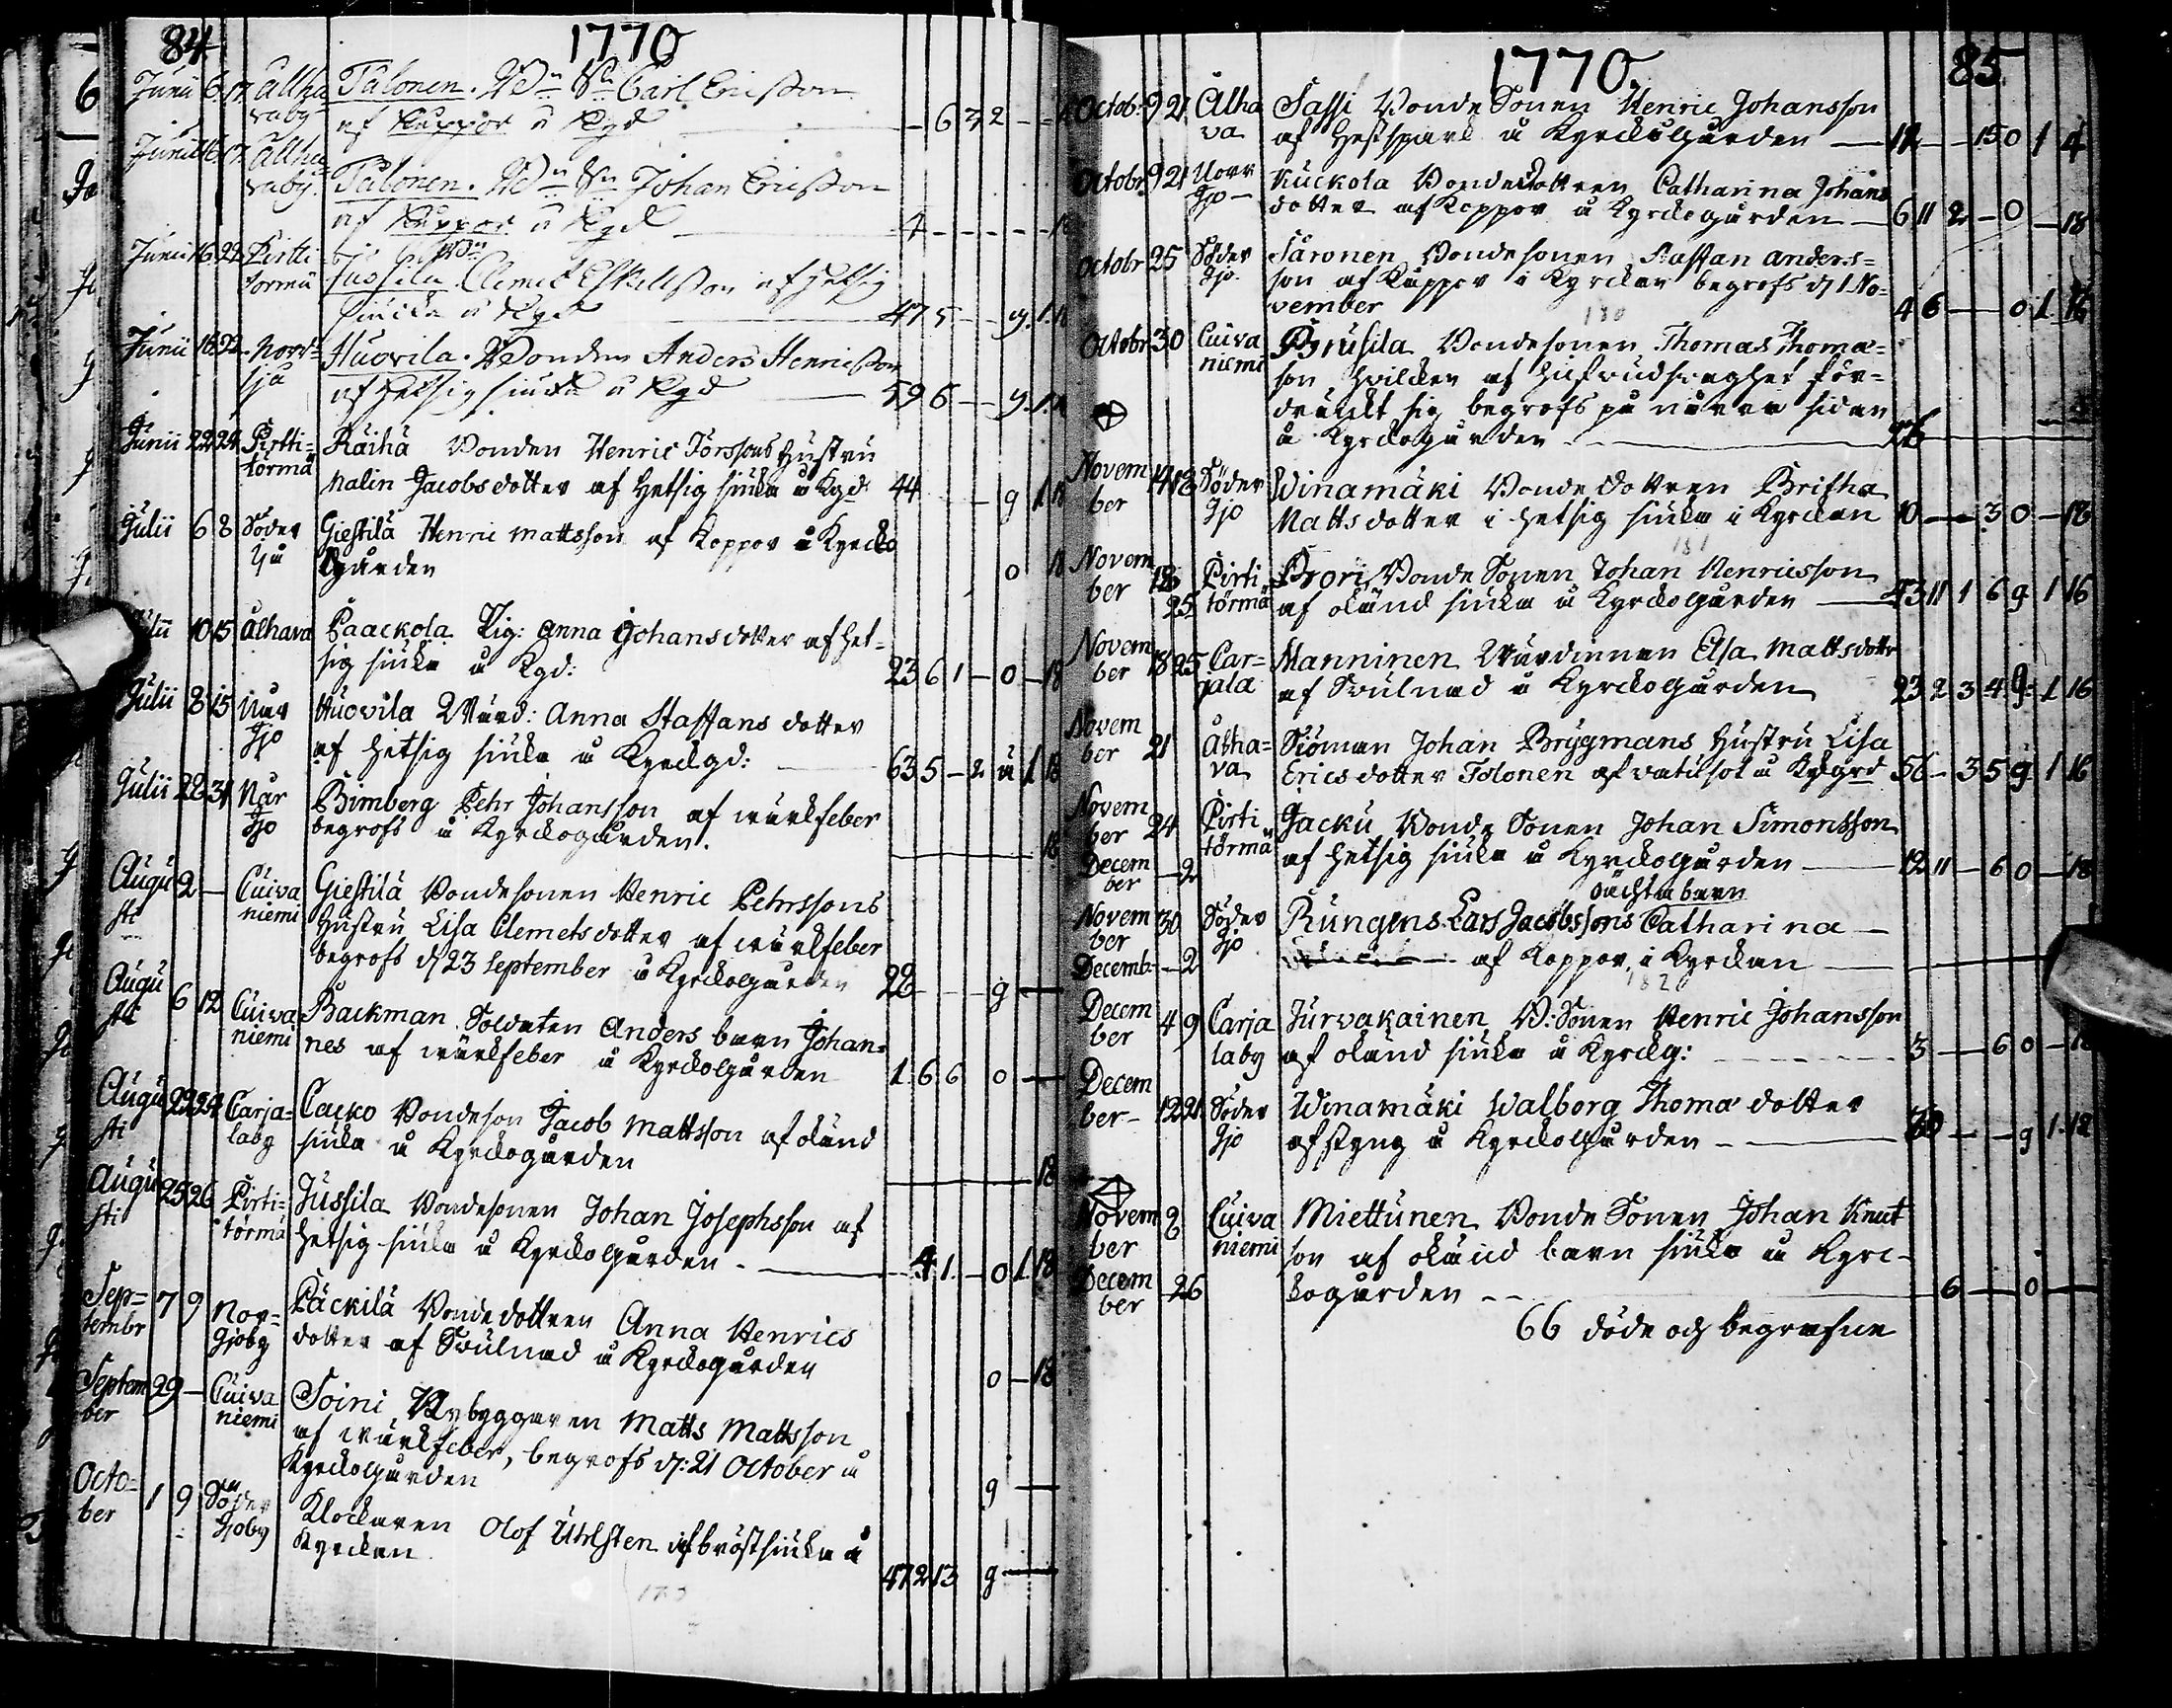 84
1770
Junii 6. 17. Allha
raby
Palonen. Bdn Sn Carl Ericsson
af Kuppor å Kgd — 6 3 2 —
Junii 16. 17. Allha
raby.
Palonen. Bdn Sn Johan Ericsson
af Kuppor å Kgd 4 — 18
Junii 16. 22 Pirtti
tormä
Jussila Clemet Eskellsson af Hetsig
siuka å Kgd 47 5 — g. 1. 18
Junii 16 22. Norr=
Ijå
Huovila. Bonden Anders Henricsson
af Hetsig siuka å Kgd 59 6 — g. 1. 18
Junii 22 24 Pirtti=
törmä
Räihä Bonden Henric Torssons Hustru
Malin Jacobsdotter af Hetsig siuka å Kgd 44 — g 1 18
Julii 6 8 Söder
Ijå
Giestilä Henric Mattsson af Koppor å Kyrcko
gården 0 18
Julii 10 15 Alhava Paackola Pig: Anna Johansdotter af Het=
sig siuka å Kgd: 23 6 1 — 0 — 18
Julii 8 15 Når
Ijo
Huovila Wärd: Anna Staffans dotter
af hetsig siuka å Kyrckgd: 63 5 — 2 1 18
Julii 22 31 Når
Ijo
Bimberg Pehr Johansson af wärkfeber
begrofs å Kyrckogården. 18
Augu
sti 2 — Cuiva
niemi
Giestilä Bondesonen Henric Pehrssons
Hustru Lisa Clemetsdotter af wärkfeber
begrofs d 23 September å Kyrckogården 22 — g —
Augu
sti 6 12 Cuiva
niemi
Backman Soldaten Anders barn Johan=
nes af wärkfeber å Kyrckogården 1 6 6 0 —
Augu
sti 22 24 Carja=
laby
Cacko Bondeson Jacob Mattsson af okänd
siuka å Kyrckogården 18
Augu
sti 25 26 Pirti=
törmä
Jussila Bondesonen Johan Josephsson af
hetsig siuka å Kyrckogården — 4 1. — 0 1. 18
Sep=
tembr 7 9 Nor=
Ijoby
Päckilä Bondedottren Anna Henrics
dotter af Svulnad å Kyrckogården 0 — 18
Septem
ber 29 — Cuiva
niemi
Soini Nybyggaren Matts Mattsson
af wärkfeber, begrofs d: 21 October å
Kyrckogården g —
Octo=
ber 1 9 Söder
Ijoby
Klockaren Olof Uhlsten af bröstsiuka i
Kyrckan 47 2 13 g —
1770.
85
Octob: 9 21 Alha
va
Tassi Bonde Sonen Henric Johansson
af Hestspark å Kyrckogården — 12 — 15 0 1 4
Octobr 9 21 Norr
Ijo —
Kuckola Bondedottren Catharina Johans
dotter af Koppor å Kyrckogården — 6 11 2 — 0 — 18
Octobr 25 Söder
Ijo.
Täronen Bondesonen Staffan Anders=
son af Kuppor i Kyrckan begrofs d 1 No=
vember 4 6 — 0 1 16
180
Octobr 30 Cuiva
niemi
Brusila Bondesonen Thomas Thoma=
son hvilcken af hufvudsvaghet för=
dränckt sig begrofs på norra sidan
å Kyrckogården —
Novem
ber 14 18 Söder
Ijo
Winamäki Bonde dottren Britha
Matts dotter i hetsig siuka i Kyrckan 10 — 3 0 — 18
181
Novem
ber 18 25 Pirti
törmä
Prori Bonde Sonen Johan Henricsson
af okänd siuka å Kyrckogården — 43 11 1 6 g 1 16
Novem
ber 18 25 Car=
jala
Manninen Wärdinnan Elsa Mattsdottr
af Svulnad å Kyrckogården 23 2 3 4 g 1 16
Novem
ber 21 Alha=
va
Siöman Johan Brygmans Hustru Lisa
Ericsdotter Tolonen af vatusot å Kyrkgrd 56 — 3 5 g 1 16
Novem
ber 24
Decem
ber — 2
Pirti
törmä
Jacku Bonde Sonen Johan Simonsson
af hetsig siuka å Kyrckogården — 12 11 — 6 0 — 18
Novem
ber 30
Decemb — 2
Söder
Ijo
oächta barn
Rungens Lars Jacobssons Catharina —
af Koppor, i Kyrckan —
182
Decem
ber 4 9 Carja
laby
Jurvakainen B: Sonen Henric Johansson
af okänd siuka å Kyrckg: — 3 — 6 0 — 18
Decem
ber — 12 21 Söder
Ijo
Winamäki Walborg Thomæ dotter
af styng å Kyrckogården — g 1. 18
Novem
ber 8
Decem
ber 26
Cuiva
niemi
Miettunen Bonde Sonen Johan Knut
son af okänd barn siuka å Kyrc=
kogården — 6 — 0 —
66 döde och begrafne